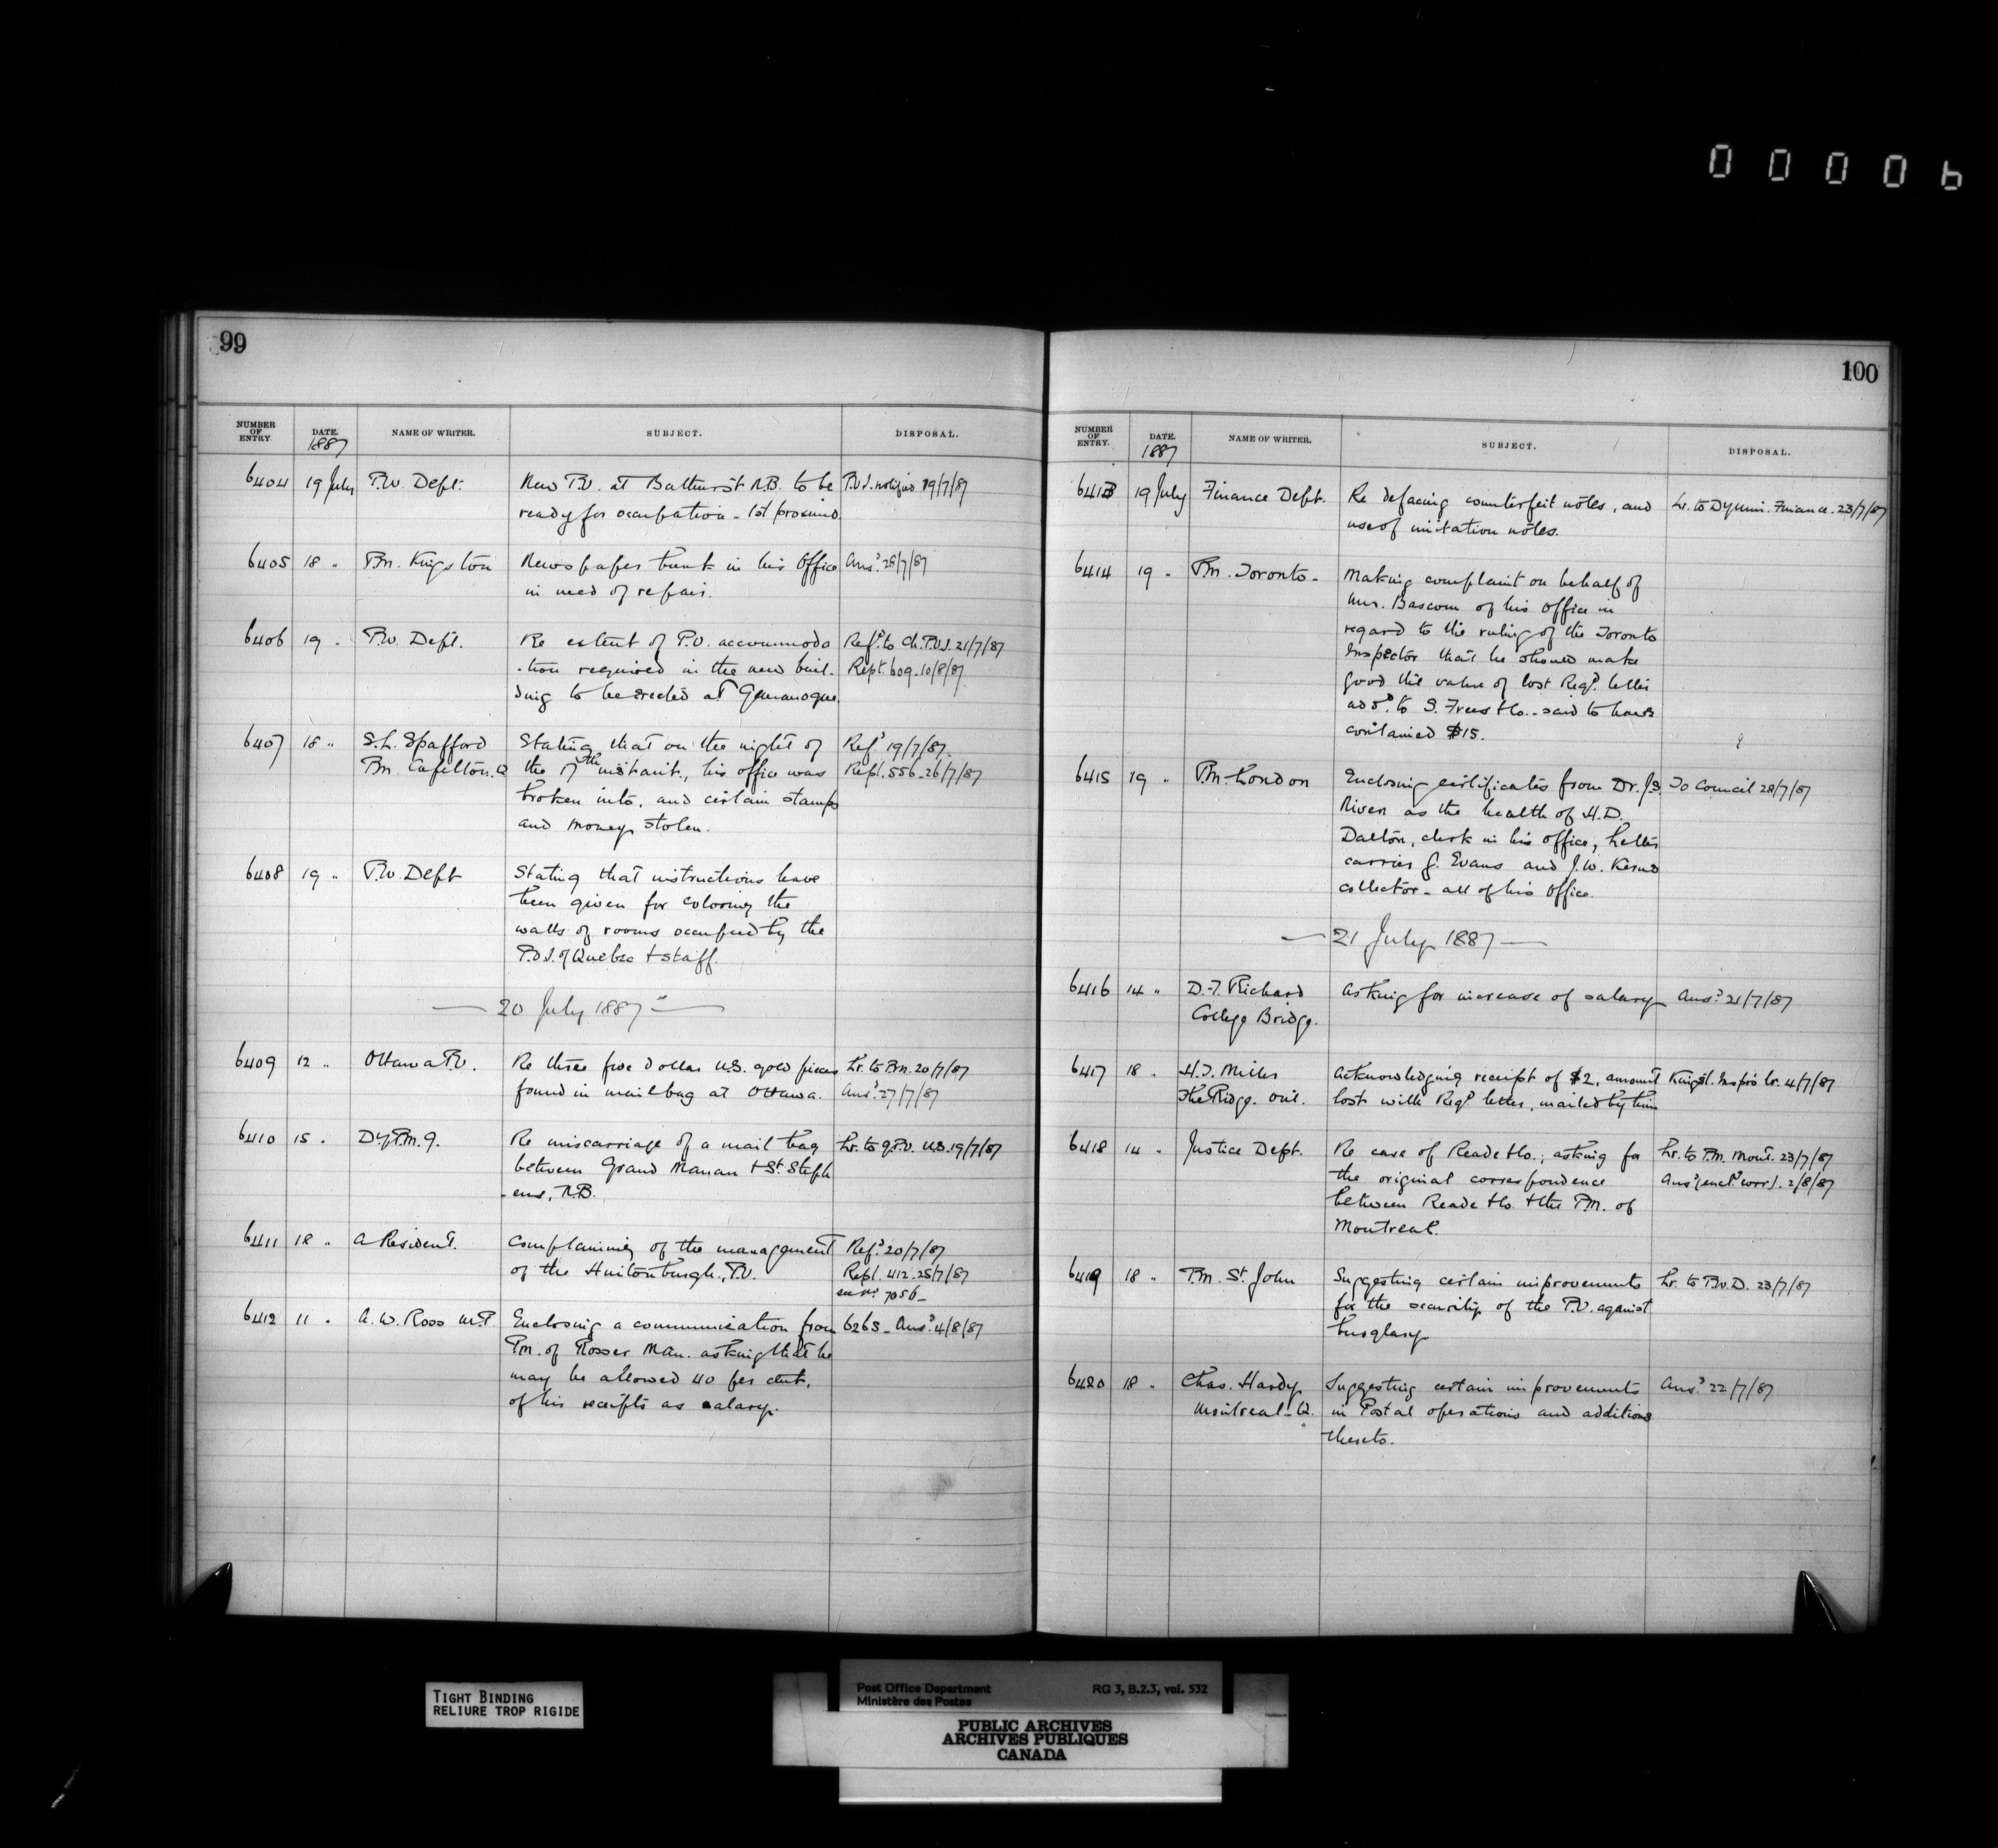 00006
99
NUMBER OF ENTRY. DATE. 1887 NAME OF WRITER. SUBJECT. DISPOSAL.
6404 19 July P.W. Dept. New P.O. at Bathurst N.B. to be P.O.I. notified 19/7/87
ready for occupation - 1st proximo.
6405 18 " P.M. Kingston Newspaper trunk in his Office Ansd. 28/7/87
in need of repair.
6406 19 " P.W. Dept. Re extent of P.O. accommoda Refd. to Ch. P.O.I. 21/7/87
-tion required in the new buil- Rept. 609 - 10/8/87
ding to be erected at Gananoque.
6407 18 " S.L. Spafford Stating that on the night of Refd. 19/7/87.
P.M. Capelton. Q the 17th instant, his office was Rept. 556 - 26/7/87
broken into, and certain stamps
and money stolen.
6408 19 " P.W. Dept Stating that instructions have
been given for coloring the
walls of rooms occupied by the
P.O.I. of Quebec & staff.
— 20 July 1887 —
6409 12 " Ottawa P.O. Re three five dollar U.S. gold pieces Lr. to P.M. 20/7/87
found in mail bag at Ottawa. Ansd. 27/7/87
6410 15 " Dy P.M.G. Re miscarriage of a mail bag Lr. to G.P.O. U.S. 19/7/87
between Grand Manan & St. Steph
-ens, N.B.
6411 18 " A Resident. Complaining of the management Refd. 20/7/87
of the Hintonburgh, P.O. Rept. 412 - 25/7/87
7056 -
6412 11 " A.W. Ross M.P. Enclosing a communication from 6265 - Ansd. 4/8/87
P.M. of Rosser Man. asking that he
may be allowed 40 per cent,
of his receipts as salary.
100
NUMBER OF ENTRY. DATE. 1887 NAME OF WRITER. SUBJECT. DISPOSAL.
6413 19 July Finance Dept. Re defacing counterfeit notes, and Lr. to Dy Mini. Finance. 23/7/87
use of imitation notes.
6414 19 " P.M. Toronto - Making complaint on behalf of
Mr. Bascom of his Office in
regard to the ruling of the Toronto
Inspector that he should make
good the value of lost Regd. letter
addd. to S. Frees & Co. - said to have
contained $15.
6415 19 " P.M. London Enclosing certificates from Dr. J.S. To Council 28/7/87
Niven as the health of H.D.
Dalton, clerk in his office, Letter
carrier G. Evans and J.W.
collector - all of his Office.
— 21 July 1887 —
6416 14 " D.F. Richard Asking for increase of salary Ansd. 21/7/87
College Bridge.
6417 18 " H.T. Miller Acknowledging receipt of $2, amount Kingst. Insprs lr. 4/7/87
The Ridge. Ont. lost with Regd letter, mailed by him
6418 14 " Justice Dept. Re case of Reade & Co., asking for Lr. to P.M. Mont. 23/7/87
the original correspondence Ansd (encl. corr). 2/8/87
between Reade & Co. & the P.M. of
Montreal.
6419 18 " P.M. St. John Suggesting certain improvements Lr. to P.W.D. 23/7/87
for the security of the P.O. against
burglary
6420 18 " Chas. Hardy Suggesting certain improvements Ansd. 22/7/87
Montreal - Q. in Postal operations and additions
thereto.
TIGHT BINDING
RELIURE TROP RIGIDE
Post Office Department RG 3, B.2.3, vol. 532
Ministère des Postes
PUBLIC ARCHIVES
ARCHIVES PUBLIQUES
CANADA